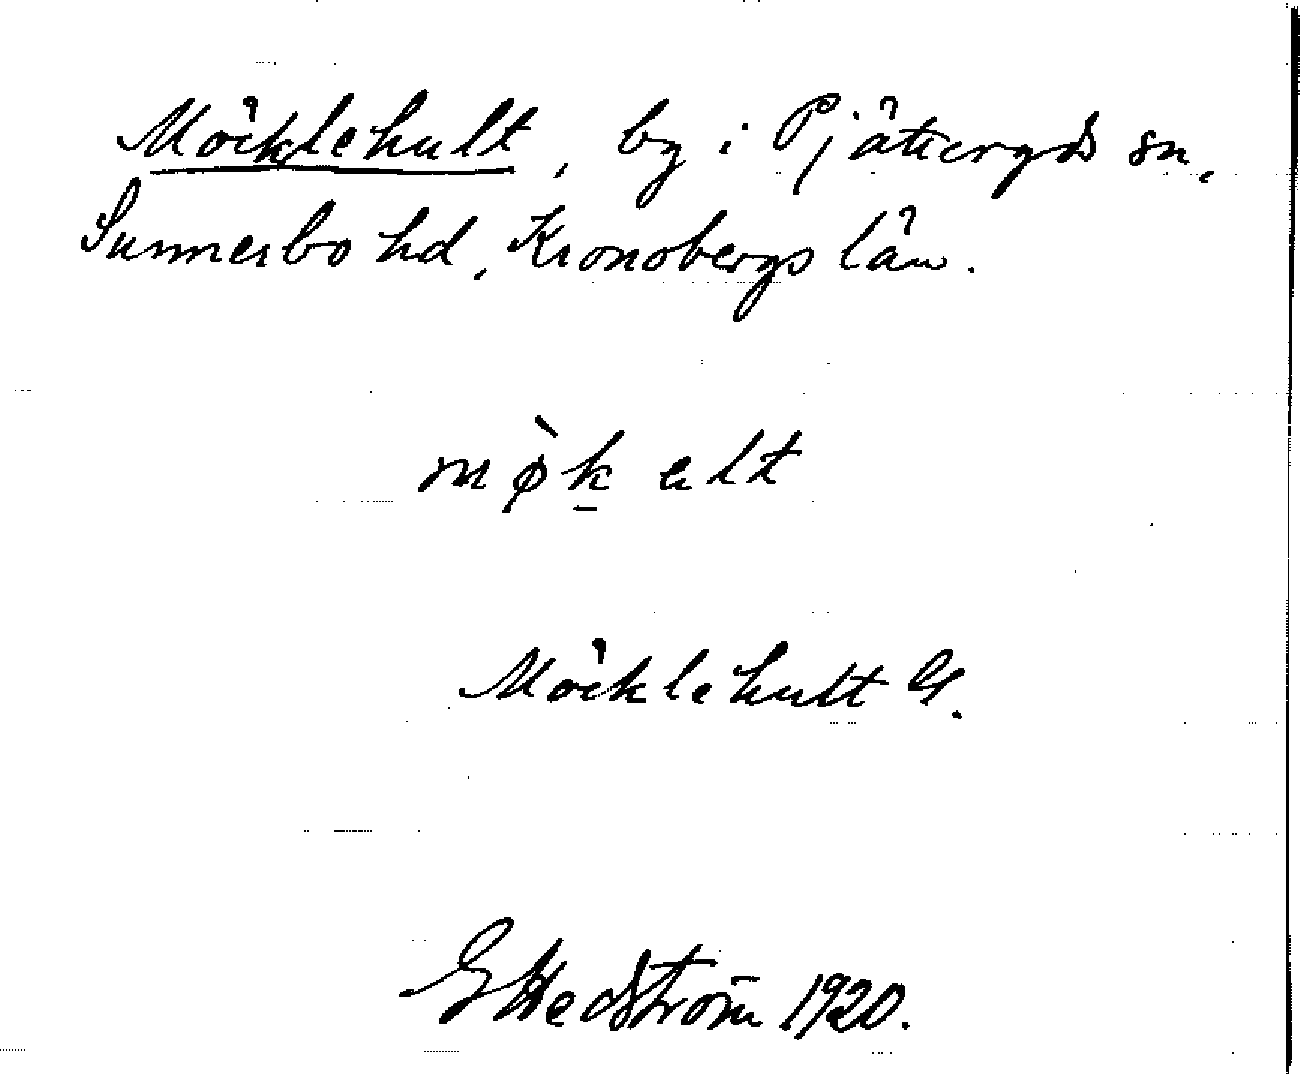 Möcklehult, by i Pjätteryds sn,
Sunnerbo hd, Kronobergs län.
mø̀k̲ elt
Möcklehult G.
G Hedström 1920.